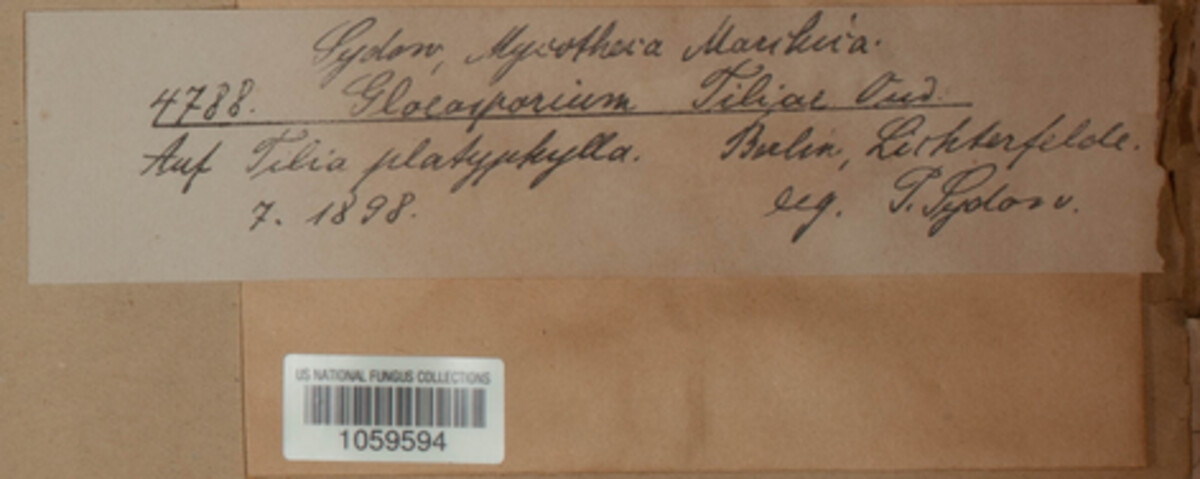 Sydow, Mycotheca Marchica.
4788. Gloeosporium Tiliae Oud.
Auf Tilia platyphylla. Berlin, Lichterfelde.
7. 1898. leg. P. Sydow.
US NATIONAL FUNGUS COLLECTIONS
1059594